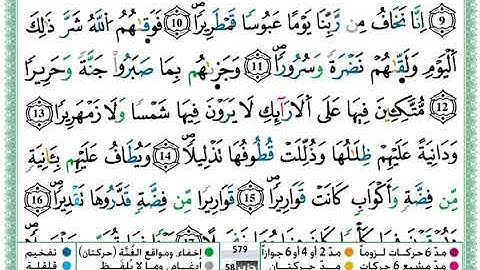 9 إِنَّا نَخَافُ مِن رَّبِّنَا يَوْمًا عَبُوسًا قَمْطَرِيرًا 10 فَوَقَىٰهُمُ اللَّهُ شَرَّ ذَٰلِكَ
الْيَوْمِ وَلَقَّىٰهُمْ نَضْرَةً وَسُرُورًا 11 وَجَزَىٰهُم بِمَا صَبَرُوا جَنَّةً وَحَرِيرًا
12 مُتَّكِـِٔينَ فِيهَا عَلَى الْأَرَآئِكِ لَا يَرَوْنَ فِيهَا شَمْسًا وَلَا زَمْهَرِيرًا 13
وَدَانِيَةً عَلَيْهِمْ ظِلَٰلُهَا وَذُلِّلَتْ قُطُوفُهَا تَذْلِيلًا 14 وَيُطَافُ عَلَيْهِم بِـَٔانِيَةٍ
مِّن فِضَّةٍ وَأَكْوَابٍ كَانَتْ قَوَارِيرَا 15 قَوَارِيرَا مِن فِضَّةٍ قَدَّرُوهَا تَقْدِيرًا 16
مدّ 6 حركات لزوماً مدّ 2 أو 4 أو 6 جوازاً 579 إخفاء، ومواقع الغُنَّة (حركتان) تفخيم
مدّ حركتان 58 إدغام، وما لا يُلفَظ قلقلة